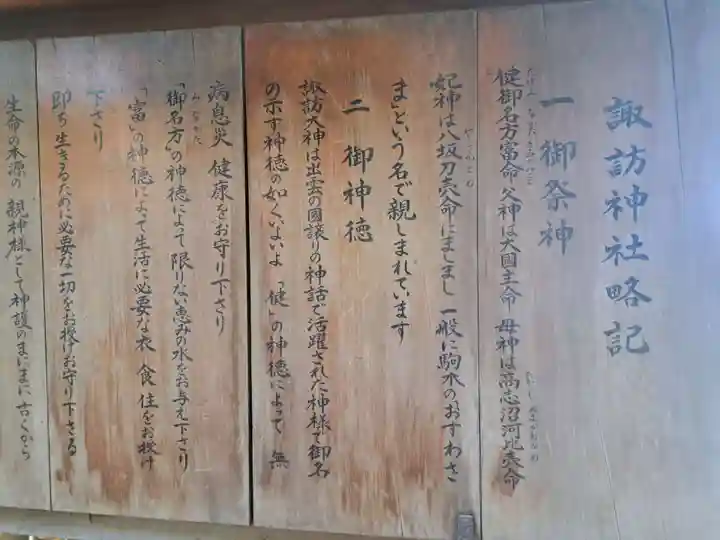 諏訪神社略記
一 御祭神
健御名方富命 父神は大国主命 母神は高志沼河比売命
妃神は八坂刀売命にましまし 一般に駒木のおすわさ
ま」という名で親しまれています
二 御神徳
諏訪大神は出雲の國譲りの神話で活躍された神様で御名
の示す神徳の如くいよいよ 「健」の神徳によって 無
病息災 健康をお守り下さり
「御名方」の神徳によって 限りない恵みの水をお与え下さり
「富」の神徳によって生活に必要な衣 食 住をお授け
下さり
即ち生きるために必要な一切をお授けお守り下さる
生命の本源の 親神様として神護のまにまに 古くから